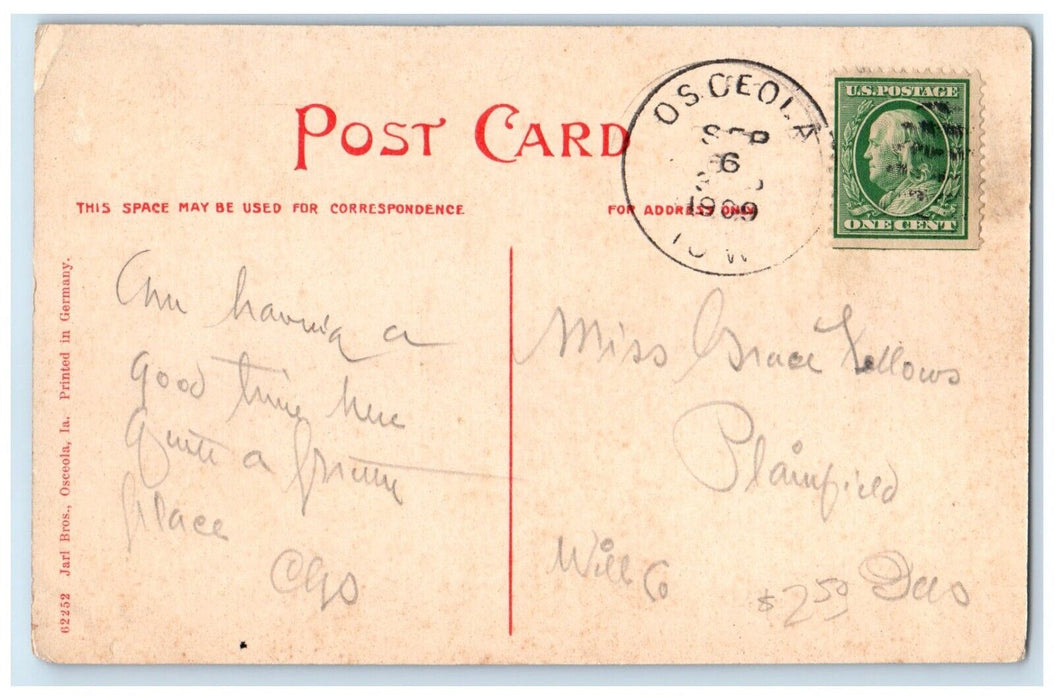 POST CARD
THIS SPACE MAY BE USED FOR CORRESPONDENCE
FOR ADDRESS ONLY
OSCEOLA
SEP
6
1909
IOW
U.S. POSTAGE
ONE CENT
62252 Jarl Bros., Osceola, Ia. Printed in Germany.
Am having a
good time here
Quite a
place
Miss Grace Fellows
Plainfield
Will Co
$2.50